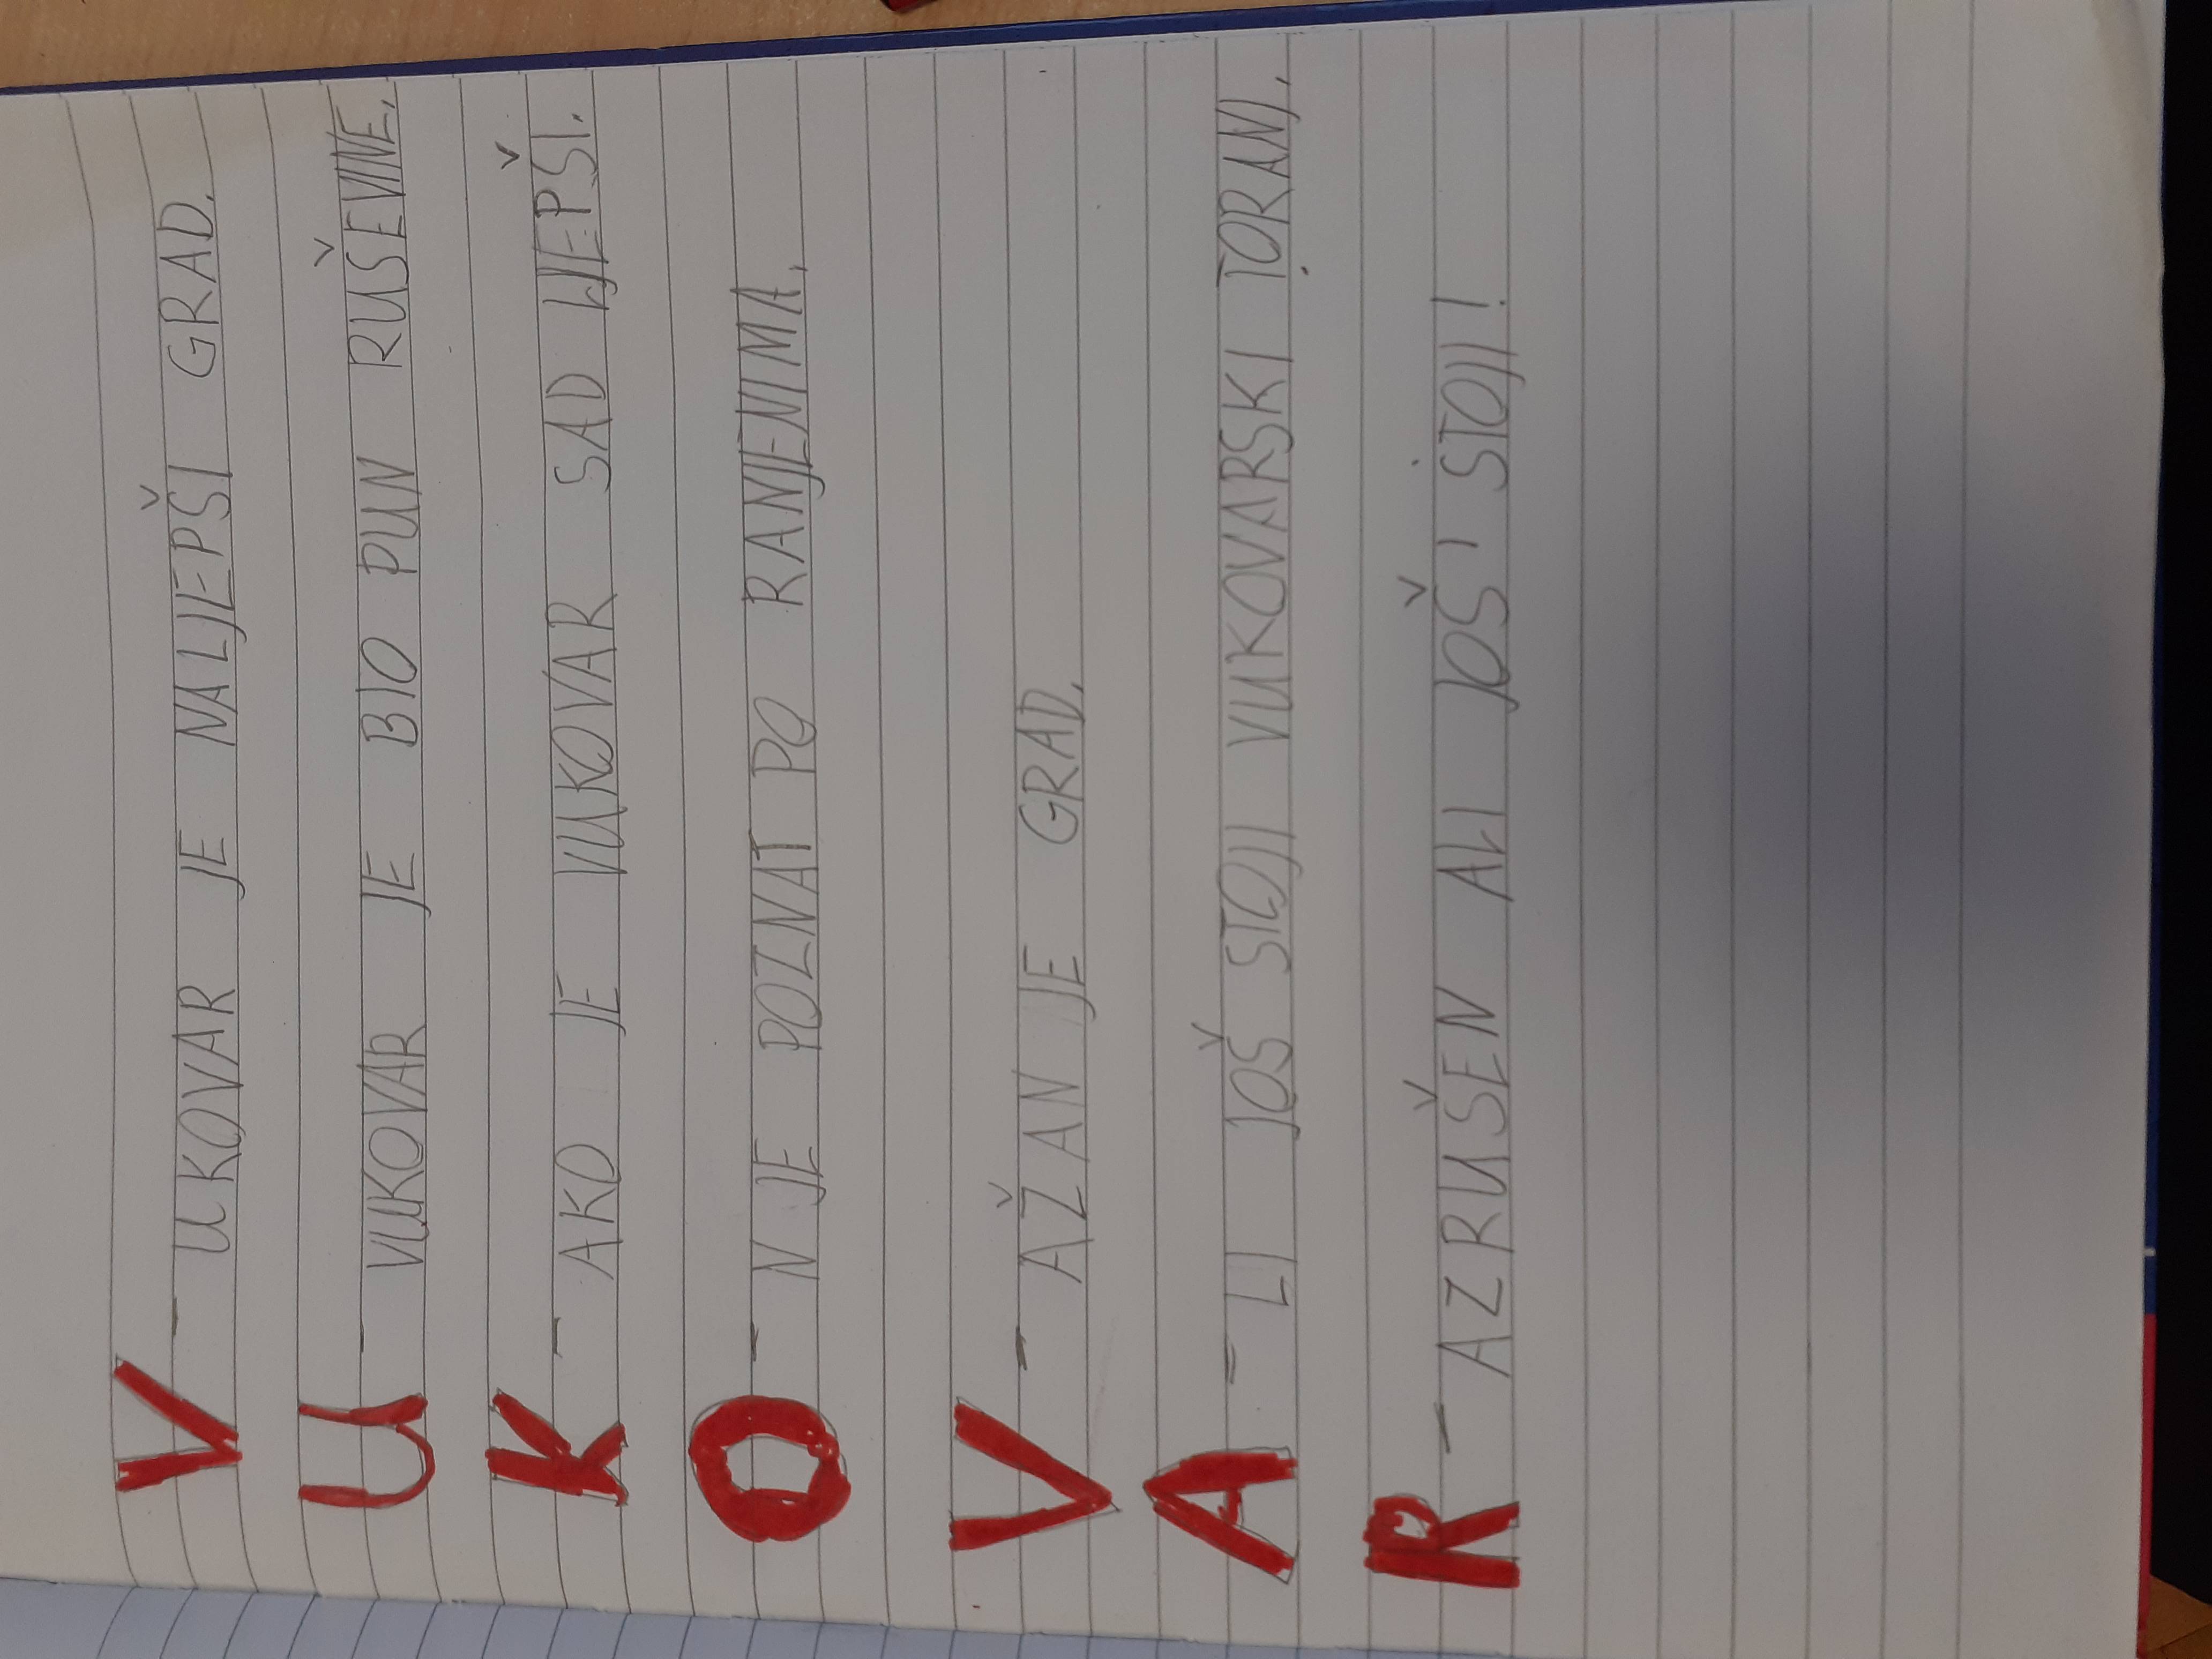 V - UKOVAR JE NALJEPŠI GRAD.
U - VUKOVAR JE BIO PUN RUŠEVINE.
K - AKO JE VUKOVAR SAD LJEPŠI.
O - N JE POZNAT PO RANJENIMA.
V - AŽAN JE GRAD.
A - LI JOŠ STOJI VUKOVARSKI TORANJ.
R - AZRUŠEN ALI JOŠ I STOJI!